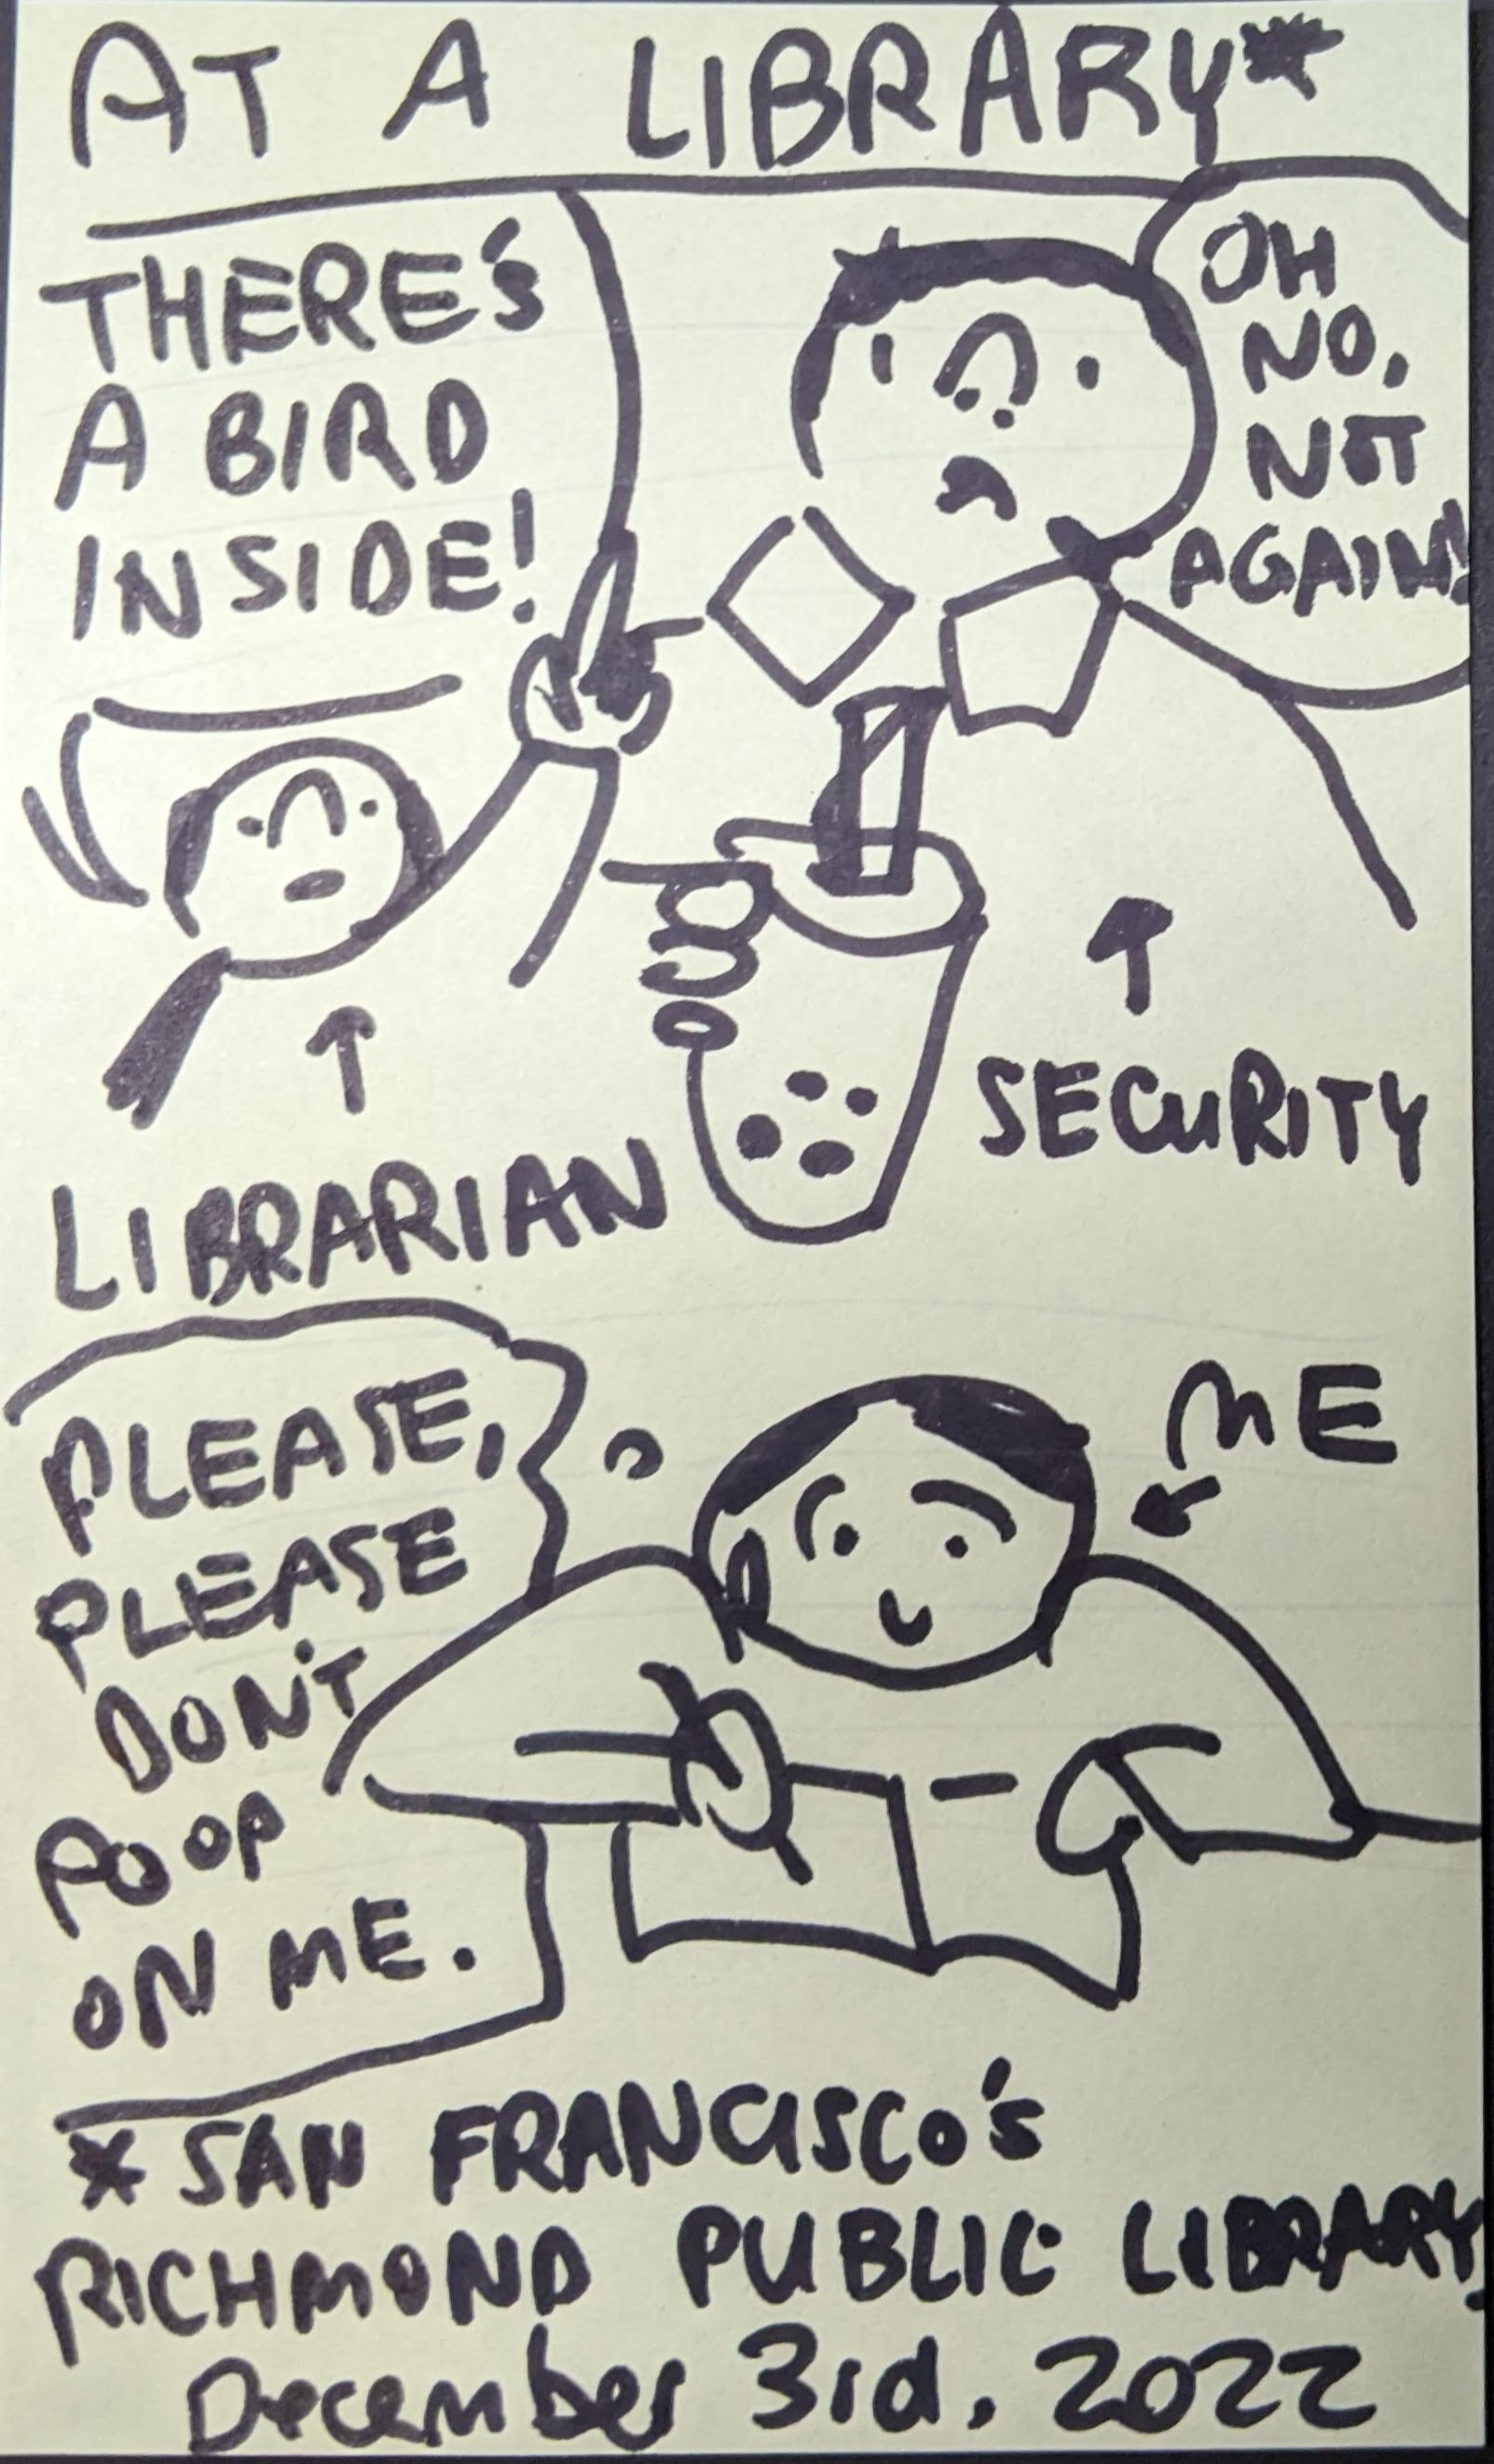 AT A LIBRARY*
THERE'S
A BIRD
INSIDE!
OH
NO,
NOT
AGAIN!
SECURITY
LIBRARIAN
ME
PLEASE,
PLEASE
DON'T
POOP
ON ME.
* SAN FRANCISCO'S
RICHMOND PUBLIC LIBRARY,
December 3rd, 2022